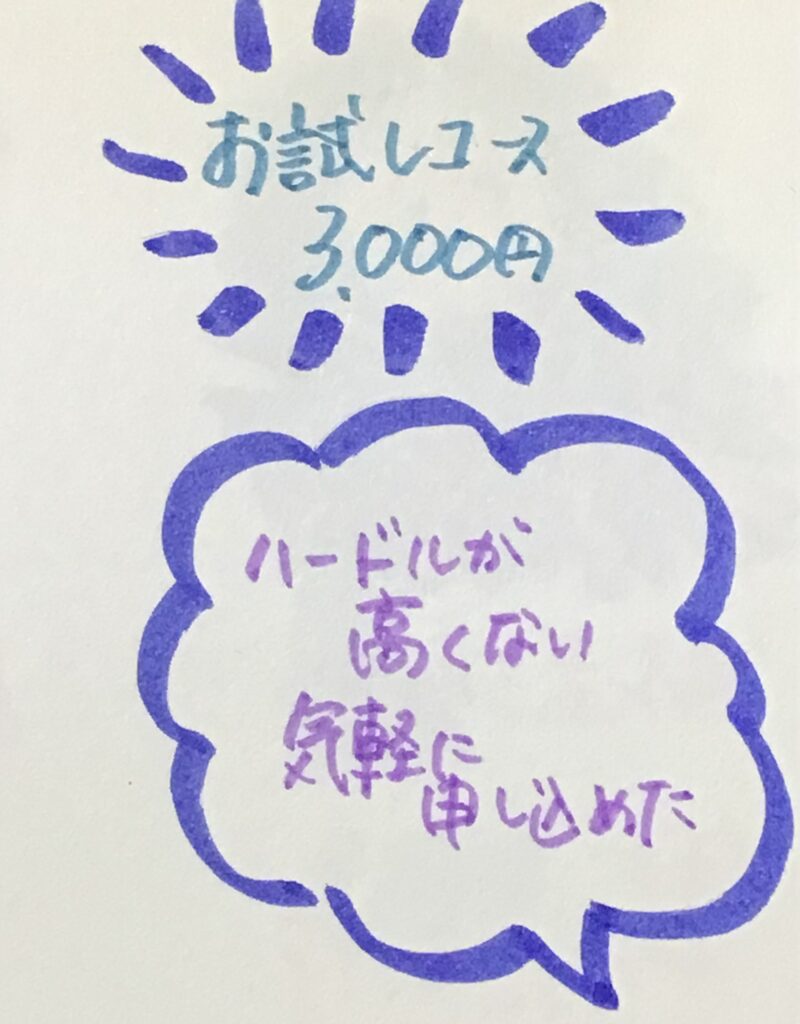 お試しコース
3,000円
ハードルが
高くない
気軽に
申し込めた